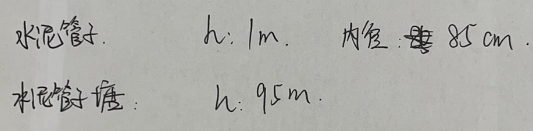 水泥管子. h: 1m. 内径: 85cm.
水泥管子塘: h: 95m.